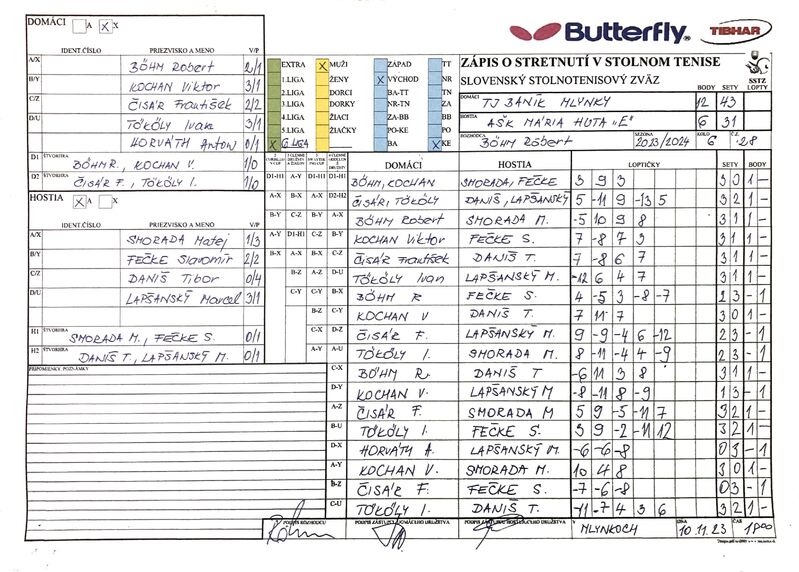 DOMÁCI A X X
IDENT.ČÍSLO PRIEZVISKO A MENO V/P
A/X BÖHM Róbert 2/1
B/Y KOCHAN Viktor 3/1
C/Z ČISÁR František 2/2
D/U TÖKÖLY Ivan 3/1
HORVÁTH Anton 0/1
D1 ŠTVORHRA BÖHM R., KOCHAN V. 1/0
D2 ČISÁR F., TÖKÖLY I. 1/0
HOSTIA X A X
IDENT.ČÍSLO PRIEZVISKO A MENO V/P
A/X SMORADA Matej 1/3
B/Y FEČKE Slavomír 2/2
C/Z DANIŠ Tibor 0/4
D/U LAPŠANSKÝ Marcel 3/1
H1 ŠTVORHRA SMORADA M., FEČKE S. 0/1
H2 DANIŠ T., LAPŠANSKÝ M. 0/1
PRIPOMIENKY, POZNÁMKY
Butterfly TIBHAR
EXTRA X MUŽI ZÁPAD TT
1.LIGA ŽENY X VÝCHOD NR
2.LIGA DORCI BA-TT TN
3.LIGA DORKY NR-TN ZA
4.LIGA ŽIACI ZA-BB BB
5.LIGA ŽIAČKY PO-KE PO
X 6.LIGA BA X KE
ZÁPIS O STRETNUTÍ V STOLNOM TENISE
SLOVENSKÝ STOLNOTENISOVÝ ZVÄZ
SSTZ
BODY SETY LOPTY
DOMÁCI TJ BANÍK MLYNKY 12 43
HOSTIA AŠK MÁRIA HUTA "E" 6 31
ROZHODCA BÖHM Róbert SEZÓNA 2023/2024 KOLO 6 Č.Z. 28
DOMÁCI HOSTIA LOPTIČKY SETY BODY
D1-H1 A-Y D1-H1 D1-H1 BÖHM, KOCHAN SMORADA, FEČKE 3 9 3 3 0 1 -
A-X B-X A-X D2-H2 ČISÁR, TÖKÖLY DANIŠ, LAPŠANSKÝ 5 -11 9 -13 5 3 2 1 -
B-Y C-Z B-Y A-X BÖHM Robert SMORADA M. -5 10 9 8 3 1 1 -
A-Y D1-H1 C-Z B-Y KOCHAN Viktor FEČKE S. 7 -8 7 3 3 1 1 -
B-X A-X B-X C-Z ČISÁR František DANIŠ T. 7 -8 6 7 3 1 1 -
B-Z A-Z D-U TÖKÖLY Ivan LAPŠANSKÝ M. -12 6 4 7 3 1 1 -
C-Y C-Y B-X BÖHM R FEČKE S. 4 -5 3 -8 -7 2 3 - 1
B-Z C-Y KOCHAN V DANIŠ T. 7 11 7 3 0 1 -
C-X D-Z ČISÁR F. LAPŠANSKÝ M. 9 -9 -4 6 -12 2 3 - 1
A-Y A-U TÖKÖLY I. SMORADA M. 8 -11 -4 4 -9 2 3 - 1
C-X BÖHM R. DANIŠ T -6 11 3 8 3 1 1 -
D-Y KOCHAN V. LAPŠANSKÝ M -8 -11 8 -9 1 3 - 1
A-Z ČISÁR F. SMORADA M 5 9 -5 -11 7 3 2 1 -
B-U TÖKÖLY I. FEČKE S. 3 9 -2 -11 12 3 2 1 -
D-X HORVÁTH A. LAPŠANSKÝ M. -6 -6 -8 0 3 - 1
A-Y KOCHAN V. SMORADA M. 10 4 8 3 0 1 -
B-Z ČISÁR F. FEČKE S. -7 -6 -8 0 3 - 1
C-U TÖKÖLY I. DANIŠ T. -11 -7 4 3 6 3 2 1 -
PODPIS ROZHODCU PODPIS ZÁSTUPCU DOMÁCEHO DRUŽSTVA PODPIS ZÁSTUPCU HOSŤUJÚCEHO DRUŽSTVA V MLYNKOCH DŇA 10.11.23 ČAS 18°°